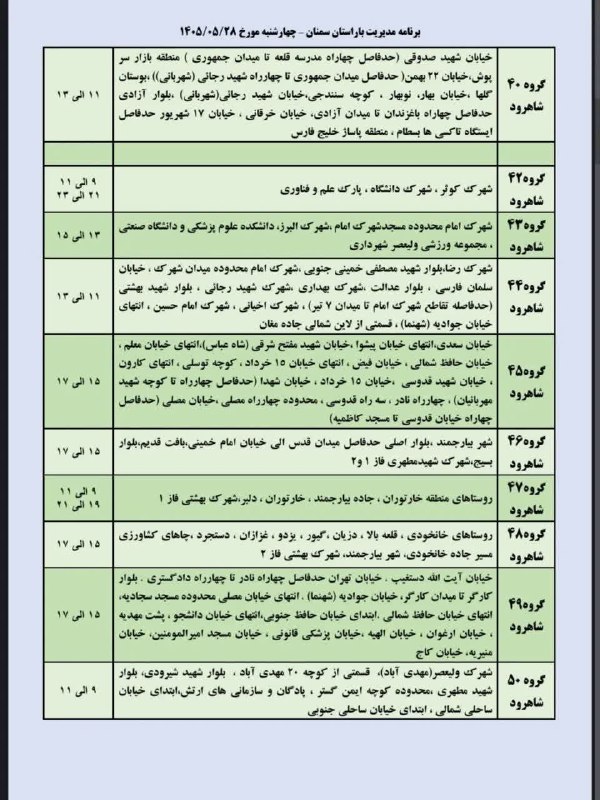 برنامه مدیریت باراستان سمنان - چهارشنبه مورخ ۱۴۰۵/۰۵/۲۸
گروه ۴۰
شاهرود
خیابان شهید صدوقی (حدفاصل چهاراه مدرسه قلعه تا میدان جمهوری ) منطقه بازار سر
پوش،خیابان ۲۲ بهمن( حدفاصل میدان جمهوری تا چهارراه شهید رجائی (شهربانی)) ،بوستان
گلها ،خیابان بهار، نوبهار ، کوچه سنندجی،خیابان شهید رجائی(شهربانی) ،بلوار آزادی
حدفاصل چهاراه باغزندان تا میدان آزادی، خیابان خرقانی ، خیابان ۱۷ شهریور حدفاصل
ایستگاه تاکسی ها بسطام ، منطقه پاساژ خلیج فارس
۱۱ الی ۱۳
گروه۴۲
شاهرود
شهرک کوثر ، شهرک دانشگاه ، پارک علم و فناوری
۹ الی ۱۱
۲۱ الی ۲۳
گروه۴۳
شاهرود
شهرک امام محدوده مسجدشهرک امام ،شهرک البرز، دانشکده علوم پزشکی و دانشگاه صنعتی
، مجموعه ورزشی ولیعصر شهرداری
۱۳ الی ۱۵
گروه۴۴
شاهرود
شهرک رضا،بلوار شهید مصطفی خمینی جنوبی،شهرک امام محدوده میدان شهرک ، خیابان
سلمان فارسی ، بلوار عدالت ،شهرک بهداری ،شهرک شهید رجائی ، بلوار شهید بهشتی
(حدفاصله تقاطع شهرک امام تا میدان ۷ تیر) ، شهرک اخیانی ، شهرک امام حسین ، انتهای
خیابان جوادیه (شهنما) ، قسمتی از لاین شمالی جاده مغان
۱۱ الی ۱۳
گروه۴۵
شاهرود
خیابان سعدی،انتهای خیابان پیشوا ،خیابان شهید مفتح شرقی (شاه عباس)،انتهای خیابان معلم ،
خیابان حافظ شمالی ، خیابان فیض ، انتهای خیابان ۱۵ خرداد ، کوچه توسلی ، انتهای کارون
، خیابان شهید قدوسی ،خیابان ۱۵ خرداد ، خیابان شهدا (حدفاصل چهارراه تا کوچه شهید
مهربانیان) ، چهارراه نادر ، سه راه قدوسی ، محدوده چهارراه مصلی ،خیابان مصلی (حدفاصل
چهاراه خیابان قدوسی تا مسجد کاظمیه)
۱۵ الی ۱۷
گروه۴۶
شاهرود
شهر بیارجمند ،بلوار اصلی حدفاصل میدان قدس الی خیابان امام خمینی،بافت قدیم،بلوار
بسیج،شهرک شهیدمطهری فاز ۱ و۲
۱۵ الی ۱۷
گروه۴۷
شاهرود
روستاهای منطقه خارتوران ، جاده بیارجمند ، خارتوران ، دلبر،شهرک بهشتی فاز ۱
۹ الی ۱۱
۱۹ الی ۲۱
گروه۴۸
شاهرود
روستاهای خانخودی ، قلعه بالا ، دزیان ،گیور ، یزدو ، غزازان ، دستجرد ،چاهای کشاورزی
مسیر جاده خانخودی، شهر بیارجمند، شهرک بهشتی فاز ۲
۱۵ الی ۱۷
گروه۴۹
شاهرود
خیابان آیت الله دستغیب . خیابان تهران حدفاصل چهاراه نادر تا چهارراه دادگستری . بلوار
کارگر تا میدان کارگر، خیابان جوادیه (شهنما) . انتهای خیابان مصلی محدوده مسجد سجادیه،
انتهای خیابان حافظ شمالی .ابتدای خیابان حافظ جنوبی،انتهای خیابان دانشجو ، پشت مهدیه
، خیابان ارغوان ، خیابان الهیه ،خیابان پزشکی قانونی ، خیابان مسجد امیرالمومنین، خیابان
منیریه، خیابان کاج
۱۵ الی ۱۷
گروه ۵۰
شاهرود
شهرک ولیعصر(مهدی آباد)، قسمتی از کوچه ۲۰ مهدی آباد ، بلوار شهید شیرودی، بلوار
شهید مطهری ،محدوده کوچه ایمن گستر ، پادگان و سازمانی های ارتش،ابتدای خیابان
ساحلی شمالی ، ابتدای خیابان ساحلی جنوبی
۹ الی ۱۱